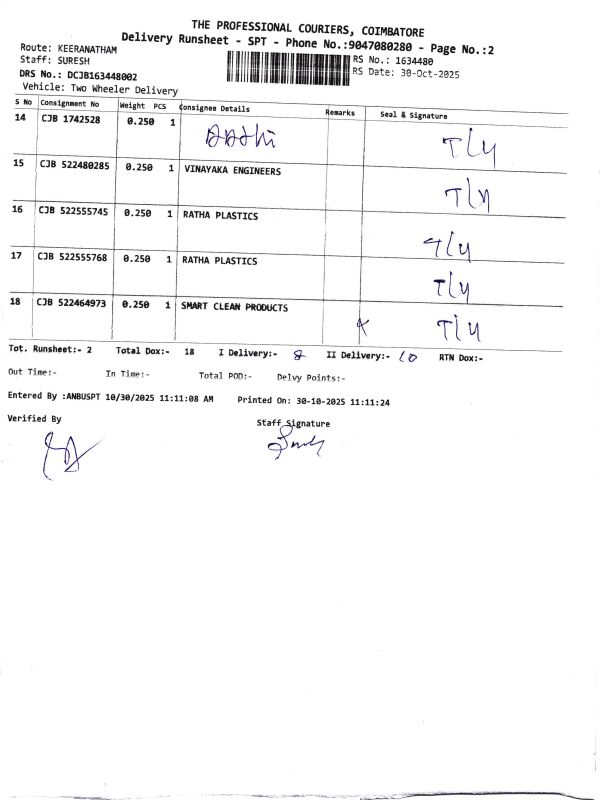 THE PROFESSIONAL COURIERS, COIMBATORE
Delivery Runsheet - SPT - Phone No.:9047080280 - Page No.:2
Route: KEERANATHAM
Staff: SURESH RS No.: 1634480
DRS No.: DCJB163448002 RS Date: 30-Oct-2025
Vehicle: Two Wheeler Delivery
S No Consignment No Weight PCS Consignee Details Remarks Seal & Signature
14 CJB 1742528 0.250 1 T/y
15 CJB 522480285 0.250 1 VINAYAKA ENGINEERS T/y
16 CJB 522555745 0.250 1 RATHA PLASTICS T/y
17 CJB 522555768 0.250 1 RATHA PLASTICS T/y
18 CJB 522464973 0.250 1 SMART CLEAN PRODUCTS T/y
Tot. Runsheet:- 2 Total Dox:- 18 I Delivery:- 8 II Delivery:- 10 RTN Dox:-
Out Time:- In Time:- Total POD:- Delvy Points:-
Entered By :ANBUSPT 10/30/2025 11:11:08 AM Printed On: 30-10-2025 11:11:24
Verified By Staff Signature